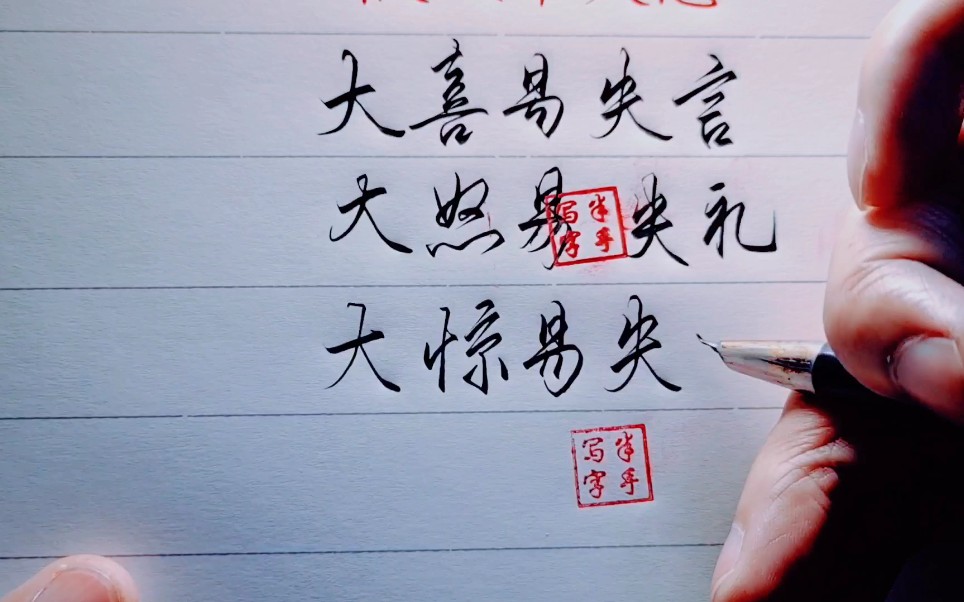 大喜易失言
大怒易失礼
大惊易失
半手写字
半手写字